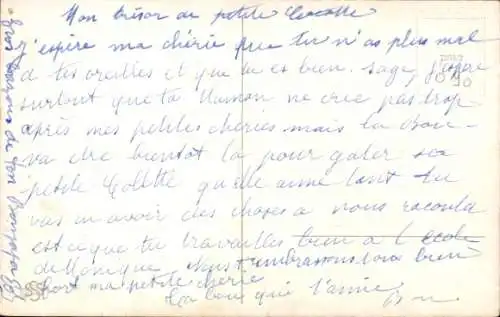 Mon trésor de petite Cocotte
J'espère ma chérie que tu n'as plus mal
d tes oreilles et que tu es bien sage, J'espere
surtout que ta Maman ne crie pas trop
après mes petites cheries mais la
va etre bientôt la pour gater sa
petite Colette qu'elle aime tant tu
vas en avoir des choses a nous raconter
est ce que tu travailles bien a l'école
de Monique Nous t'embrassons tous bien
fort ma petite cherie
qui t'aime
Gros de ton